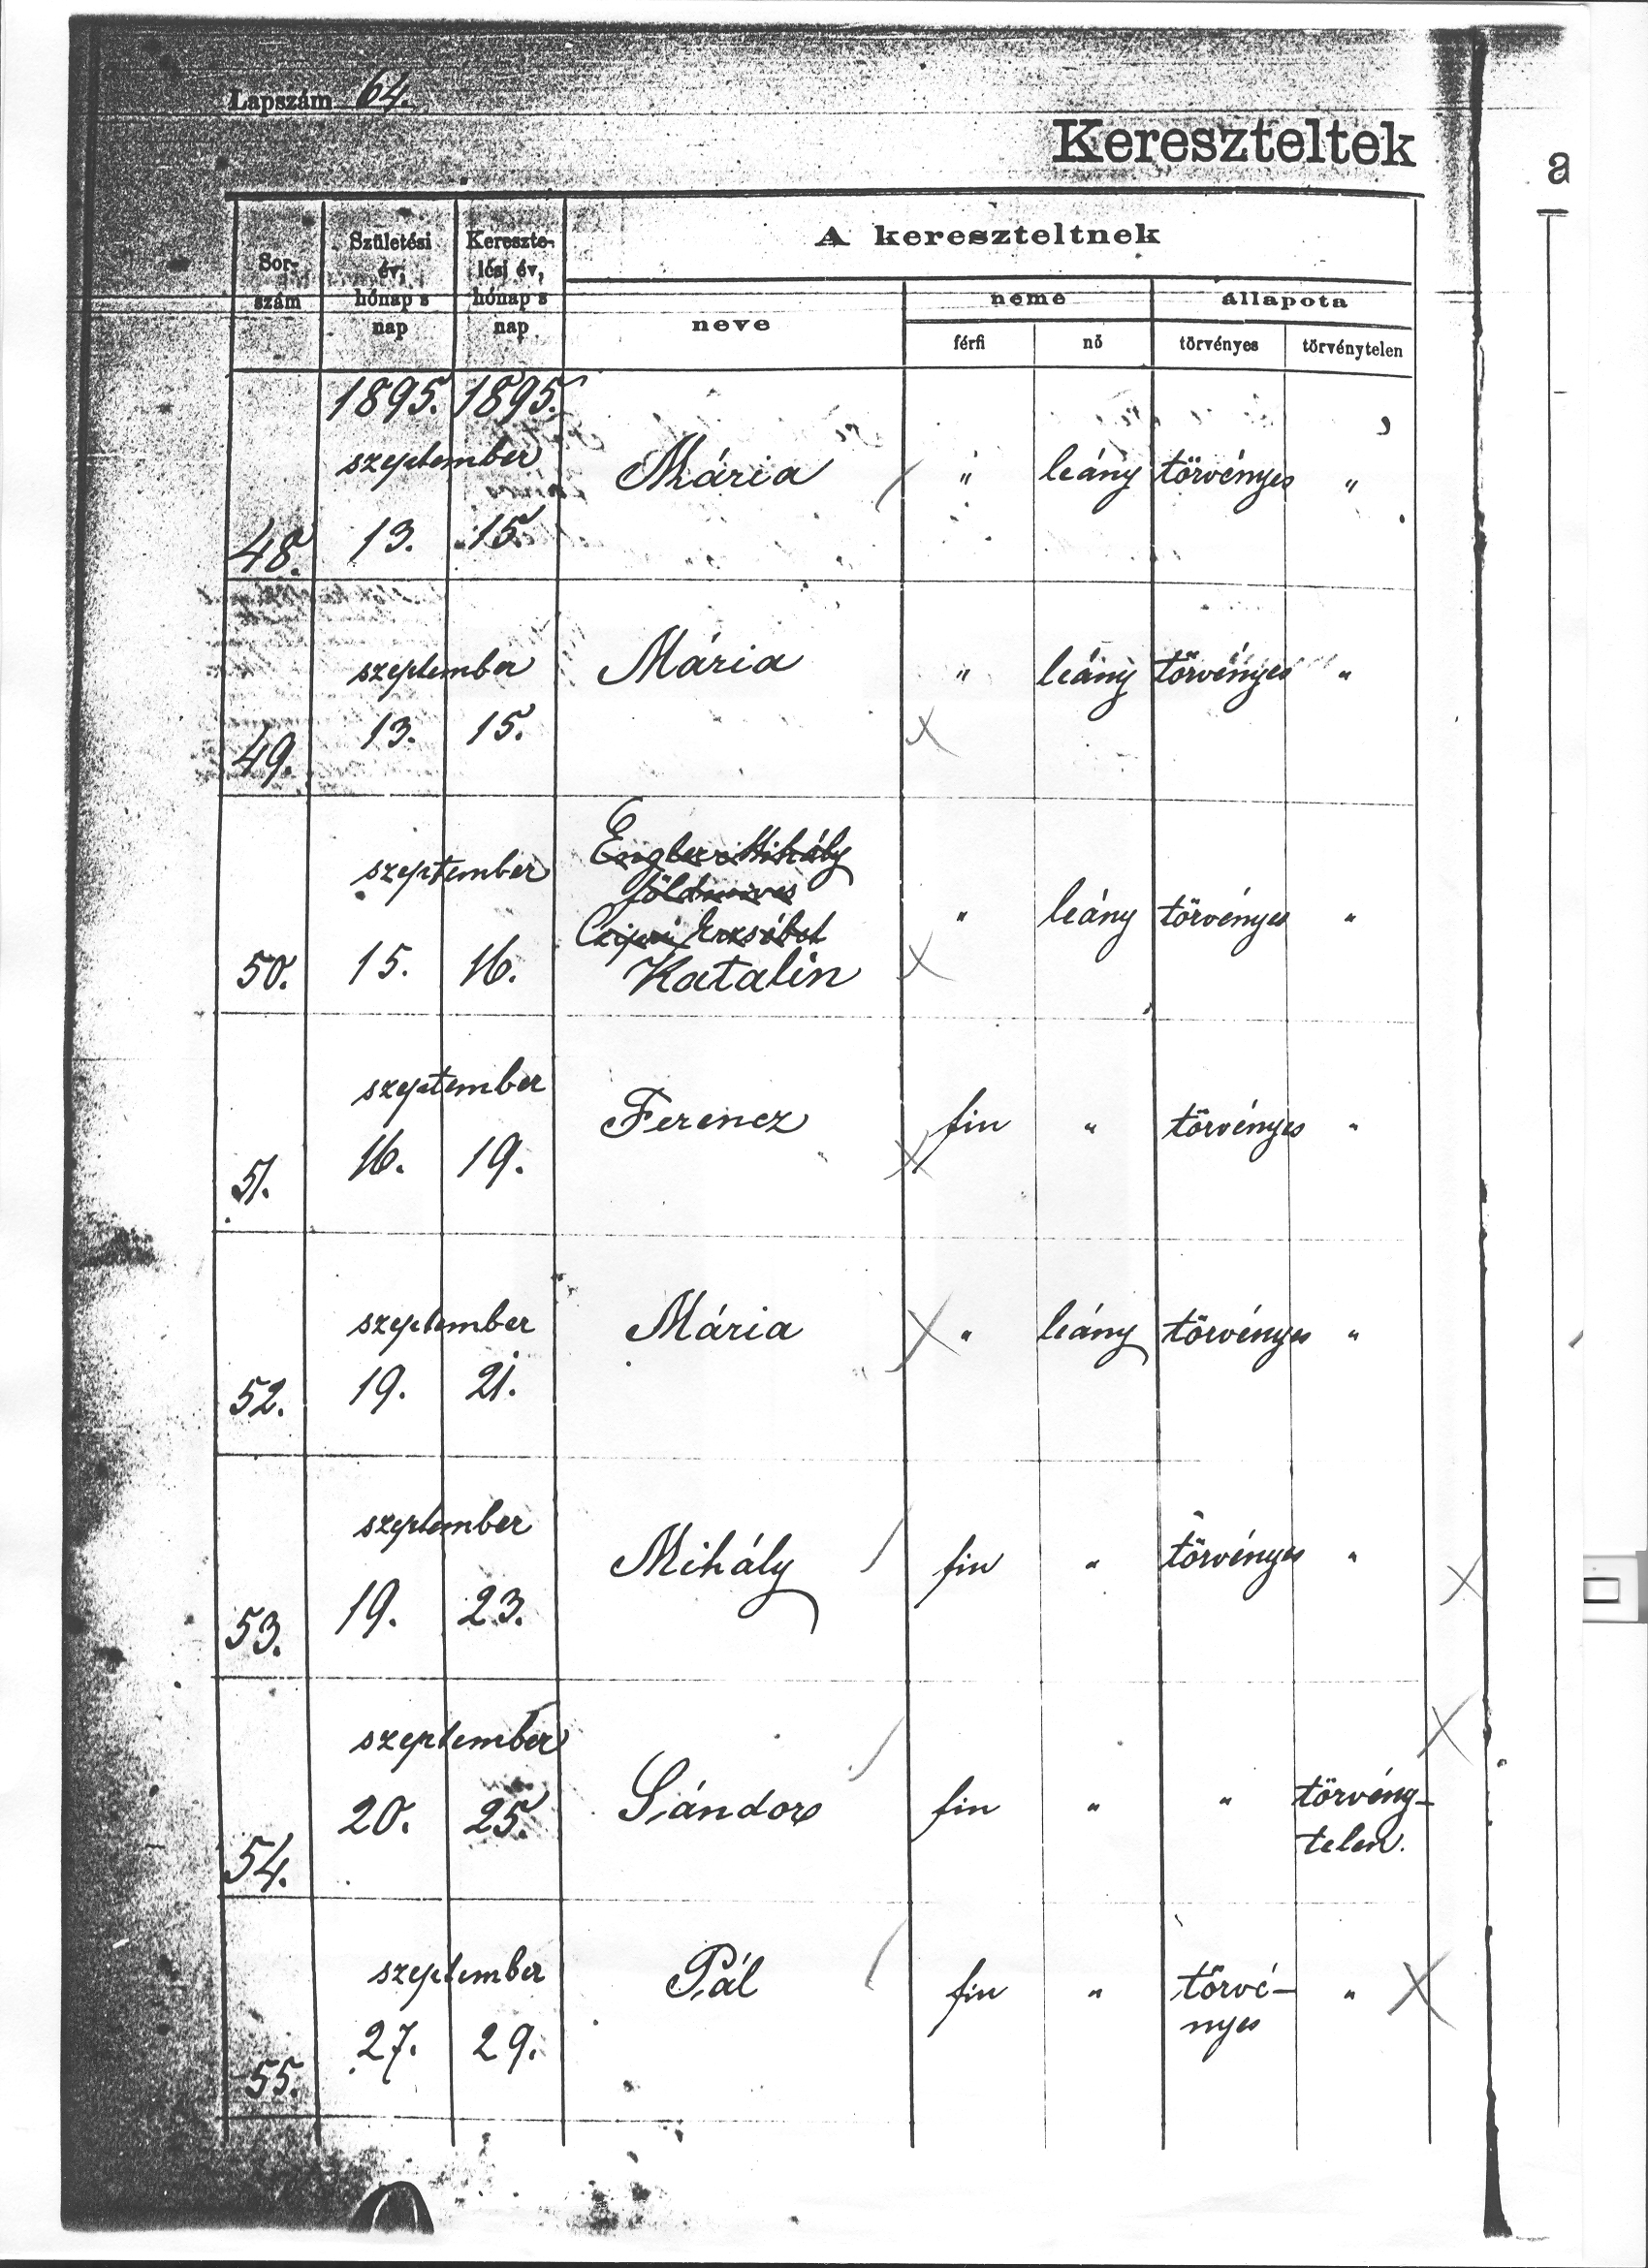 Lapszám 64.
Kereszteltek
a
Sor-
szám
Születési
év,
hónap s
nap
Kereszte-
lési év,
hónap s
nap
A kereszteltnek
neve
neme
állapota
férfi
nő
törvényes
törvénytelen
1895. 1895.
szeptember
48. 13. 15. Mária " leány törvényes "
szeptember
49. 13. 15. Mária " leány törvényes "
Engler Mihály
földmives
Erzsébet
szeptember
50. 15. 16. Katalin " leány törvényes "
szeptember
51. 16. 19. Ferencz fiu " törvényes "
szeptember
52. 19. 21. Mária " leány törvényes "
szeptember
53. 19. 23. Mihály fiu " törvényes "
szeptember
54. 20. 25. Sándor fiu " " törvény-
telen.
szeptember
55. 27. 29. Pál fiu " törvé-
nyes "